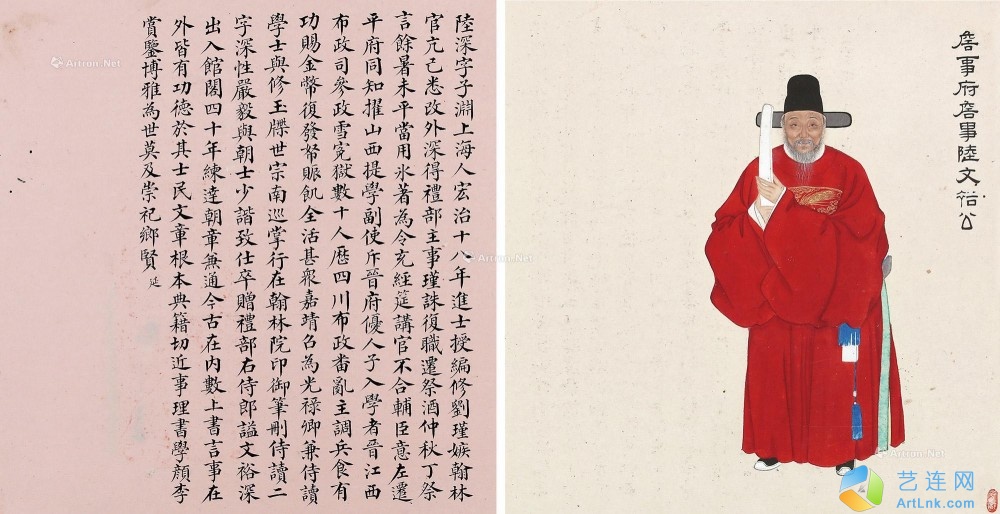 陸深字子淵上海人宏治十八年進士授編修劉瑾嫉翰林
官亢己悉改外深得禮部主事瑾誅復職遷祭酒仲秋丁祭
言餘暑未平當用氷著為令充經筵講官不合輔臣意左遷
平府同知擢山西提學副使斥晉府優人子入學者晉江西
布政司參政雪冤獄數十人歷四川布政畨亂主調兵食有
功賜金幣復發帑賑飢全活甚眾嘉靖召為光祿卿兼侍讀
學士與修玉牒世宗南巡掌行在翰林院印御筆刪侍讀二
字深性嚴毅與朝士少諧致仕卒贈禮部右侍郎謚文裕深
出入館閣四十年練達朝章無通今古在內數上書言事在
外皆有功德於其士民文章根本典籍切近事理書學顏李
賞鑒博雅為世莫及崇祀鄉賢 延
詹事府詹事陸文裕公
Artron.Net
Artron.Net
Artron.Net
Artron.Net
艺连网
ArtLnk.com